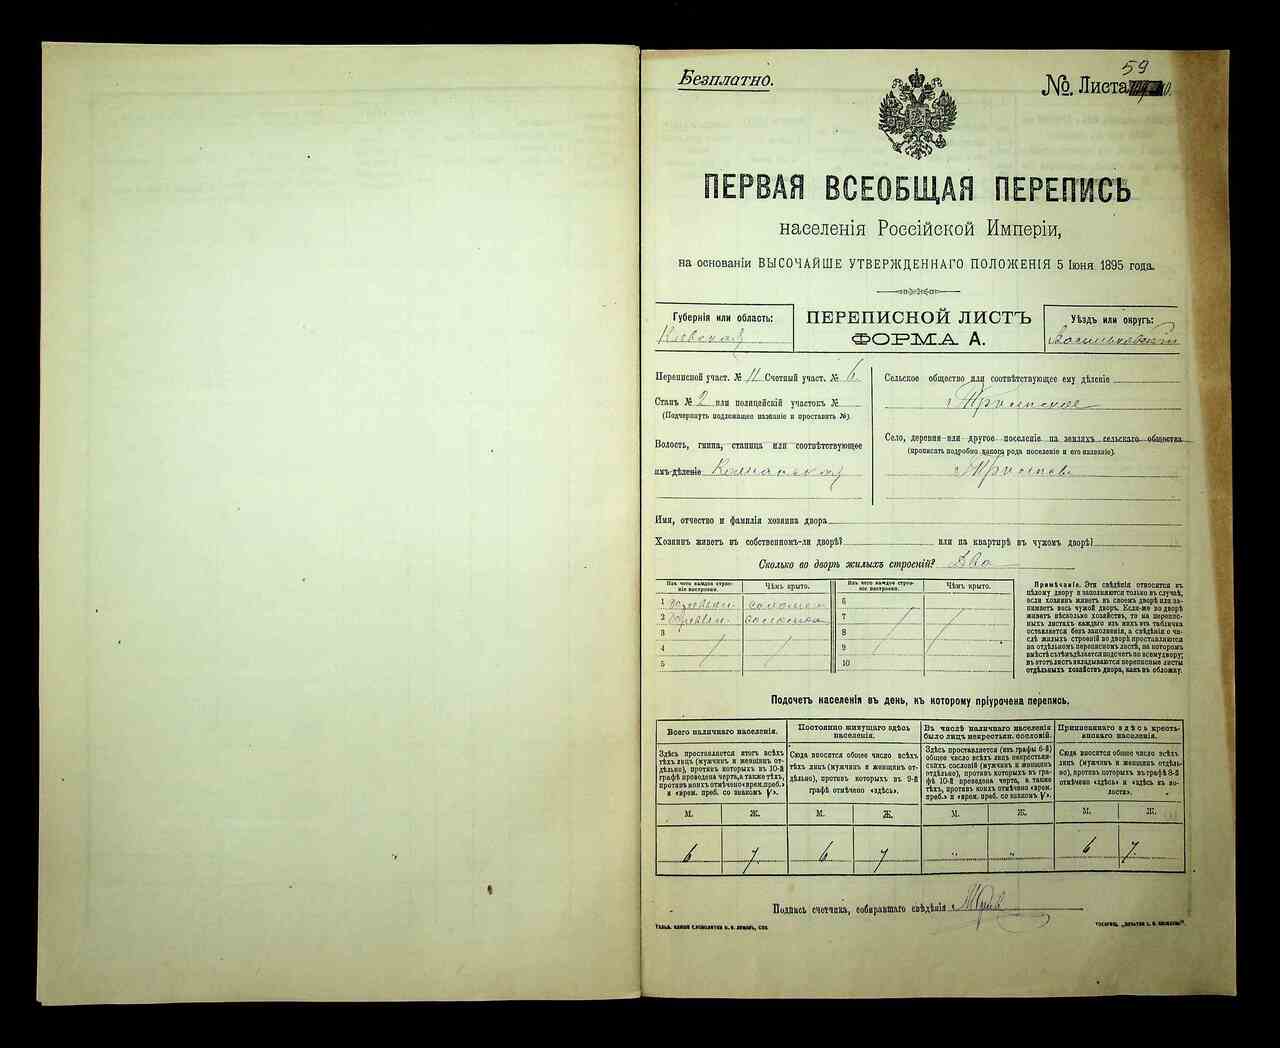 Безплатно.
59
№. Листа
ПЕРВАЯ ВСЕОБЩАЯ ПЕРЕПИСЬ
населенія Россійской Имперіи,
на основаніи ВЫСОЧАЙШЕ УТВЕРЖДЕННАГО ПОЛОЖЕНІЯ 5 Іюня 1895 года.
Губернія или область:
Кіевская
ПЕРЕПИСНОЙ ЛИСТЪ
ФОРМА А.
Уѣздъ или округъ:
Васильковскій
Переписной участ. № 11 Счетный участ. № 6
Станъ № 2 или полицейскій участокъ №
(Подчеркнуть подлежащее названіе и проставить №).
Волость, гмина, станица или соотвѣтствующее
имъ дѣленіе
Сельское общество или соотвѣтствующее ему дѣленіе
Село, деревня или другое поселеніе на земляхъ сельскаго общества
(прописать подробно какого рода поселеніе и его названіе).
Имя, отчество и фамилія хозяина двора
Хозяинъ живетъ въ собственномъ-ли дворѣ? или на квартирѣ въ чужомъ дворѣ?
Сколько во дворѣ жилыхъ строеній? Два
Изъ чего каждое строеніе построено. Чѣмъ крыто. Изъ чего каждое строеніе построено. Чѣмъ крыто.
1 соломой 6
2 соломой 7
3 8
4 9
5 10
Примѣчаніе. Эти свѣдѣнія относятся къ
цѣлому двору и заполняются только въ случаѣ,
если хозяинъ живетъ въ своемъ дворѣ или занимаетъ
весь чужой дворъ. Если-же во дворѣ
живетъ нѣсколько хозяйствъ, то на переписныхъ
листахъ каждаго изъ нихъ эта табличка
оставляется безъ заполненія, а свѣдѣнія о числѣ
жилыхъ строеній во дворѣ проставляются
на отдѣльномъ переписномъ листѣ, на которомъ
вмѣстѣ съ тѣмъ дѣлается подсчетъ по всему двору;
въ этотъ листъ вкладываются переписные листы
отдѣльныхъ хозяйствъ двора, какъ въ обложку.
Подсчетъ населенія въ день, къ которому пріурочена перепись.
Всего наличнаго населенія.
Здѣсь проставляется итогъ всѣхъ
тѣхъ лицъ (мужчинъ и женщинъ отдѣльно),
противъ которыхъ въ 10-й
графѣ проведена черта, а также тѣхъ,
противъ коихъ отмѣчено «врем. преб.»
и «врем. преб. со знакомъ V».
Постоянно живущаго здѣсь населенія.
Сюда вносится общее число всѣхъ
тѣхъ лицъ (мужчинъ и женщинъ отдѣльно),
противъ которыхъ въ 9-й
графѣ отмѣчено «здѣсь».
Въ числѣ наличнаго населенія было лицъ некрестьян. сословій.
Здѣсь проставляется (изъ графы 6-й)
общее число всѣхъ лицъ некрестьянскихъ
сословій (мужчинъ и женщинъ
отдѣльно), противъ которыхъ въ графѣ
10-й проведена черта, а также
тѣхъ, противъ коихъ отмѣчено «врем.
преб.» и «врем. преб. со знакомъ V».
Приписаннаго здѣсь крестьянскаго населенія.
Сюда вносится общее число всѣхъ
лицъ (мужчинъ и женщинъ отдѣльно),
противъ которыхъ въ графѣ 8-й
отмѣчено «здѣсь» и «здѣсь къ волости».
М. Ж. М. Ж. М. Ж. М. Ж.
6 7 6 7 " " 6 7
Подпись счетчика, собиравшаго свѣдѣнія